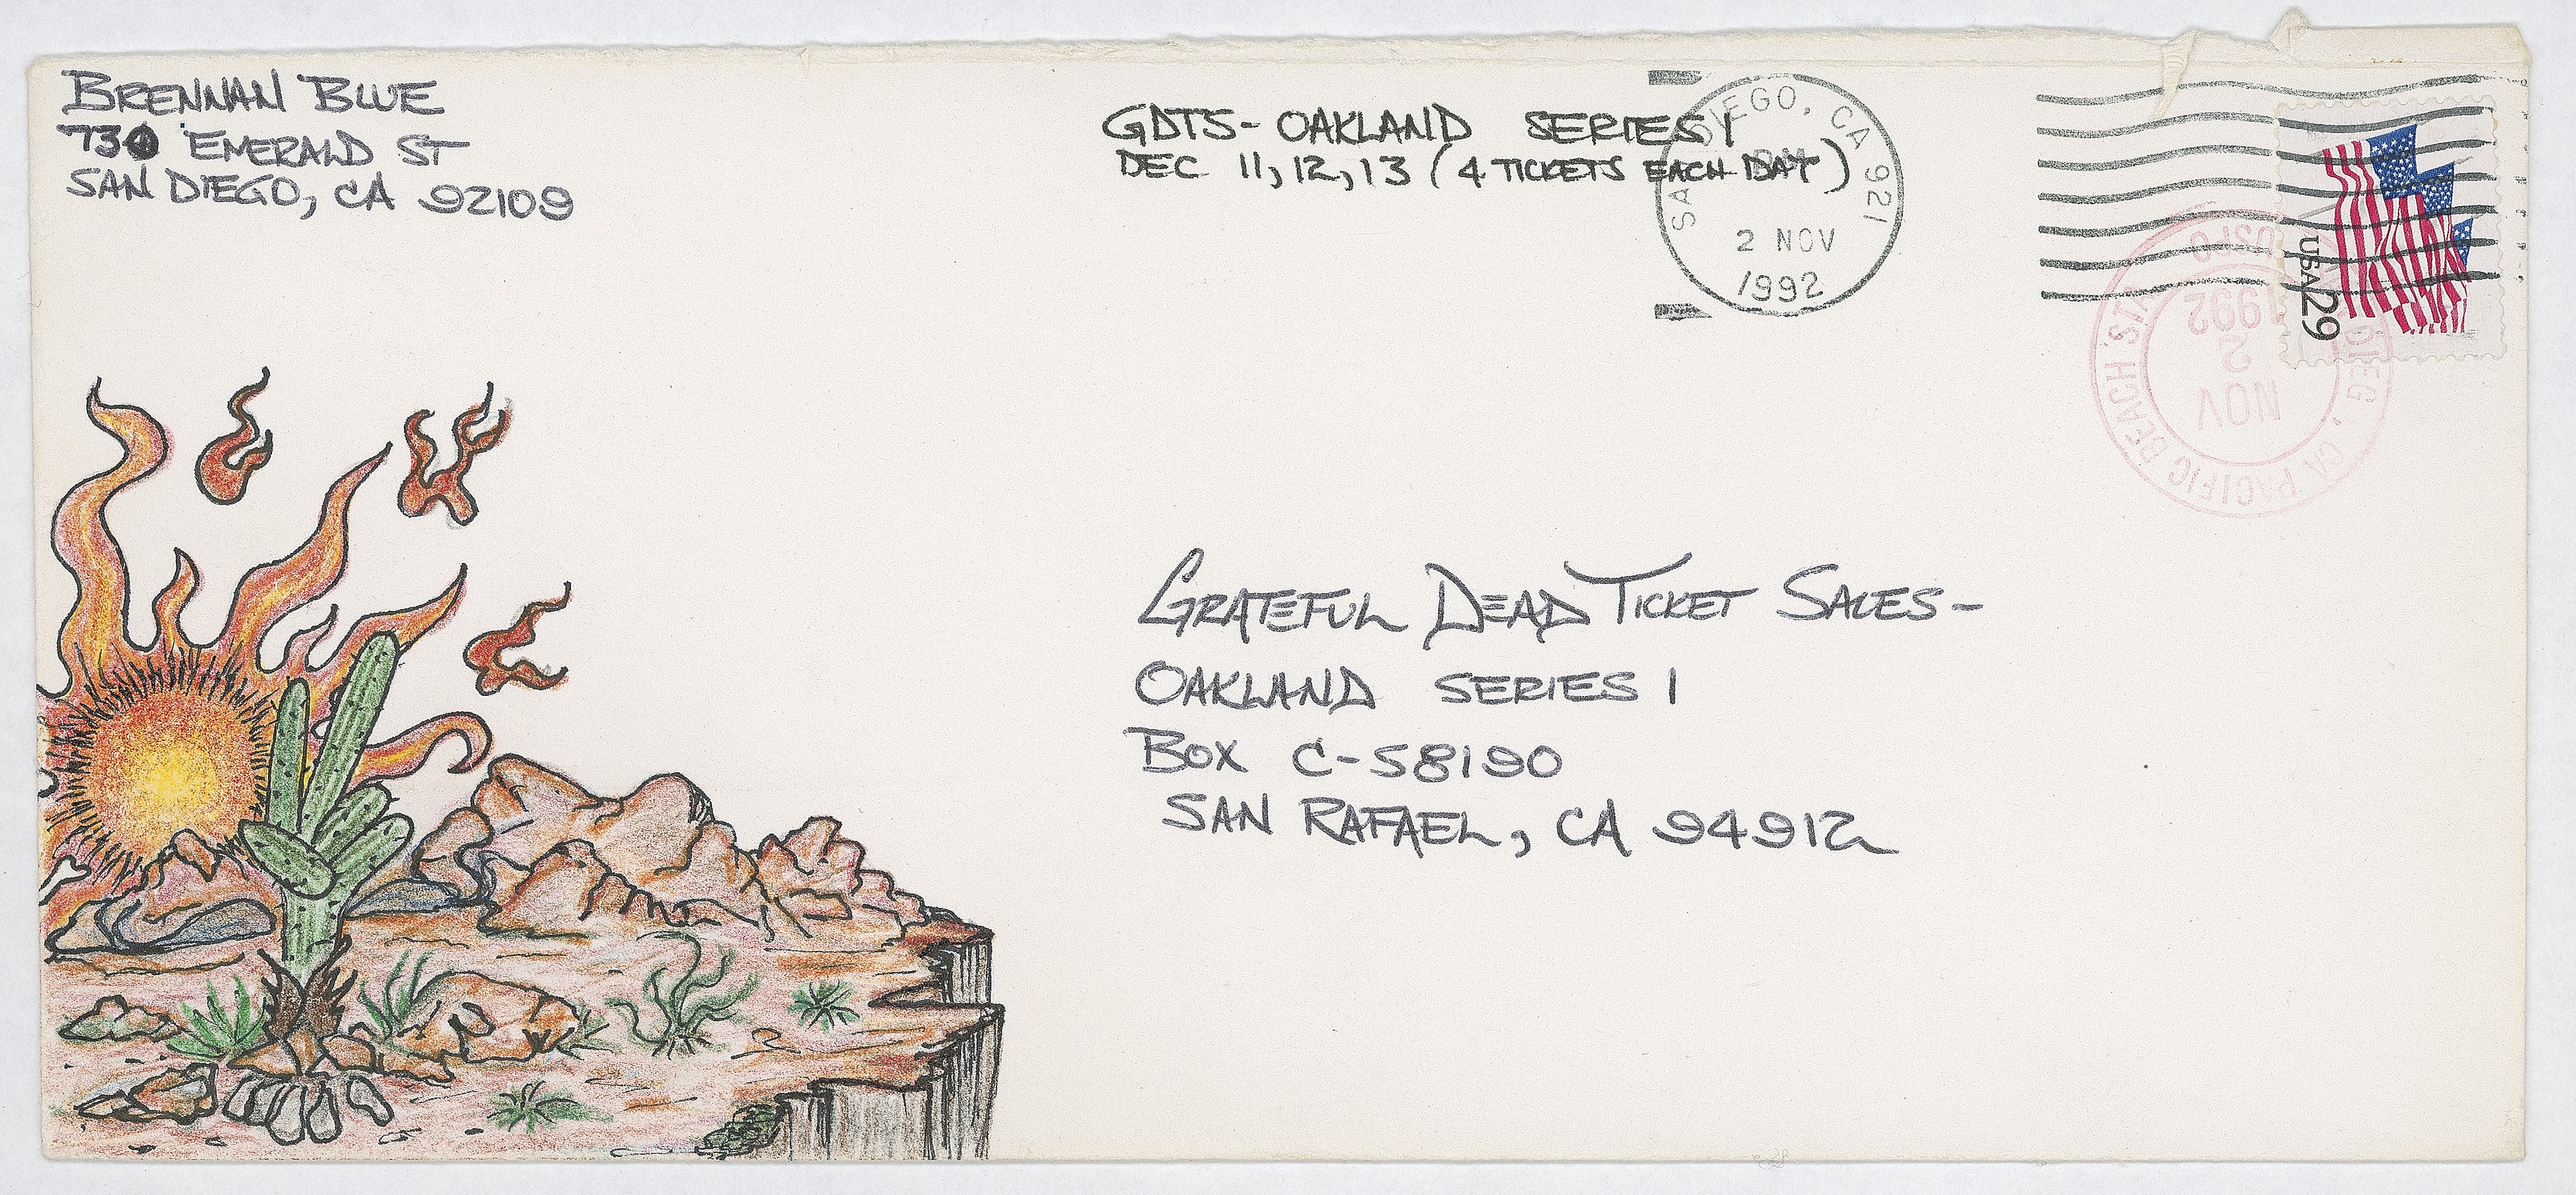 BRENNAN BLUE
730 EMERALD ST
SAN DIEGO, CA 92109
GDTS- OAKLAND SERIES 1
DEC 11, 12, 13 (4 TICKETS EACH DAY)
SAN DIEGO, CA 921
PM
2 NOV
1992
USA 29
DIEGO, CA PACIFIC BEACH STA
USPO
NOV
2
1992
GRATEFUL DEAD TICKET SALES-
OAKLAND SERIES 1
BOX C-58190
SAN RAFAEL, CA 94912